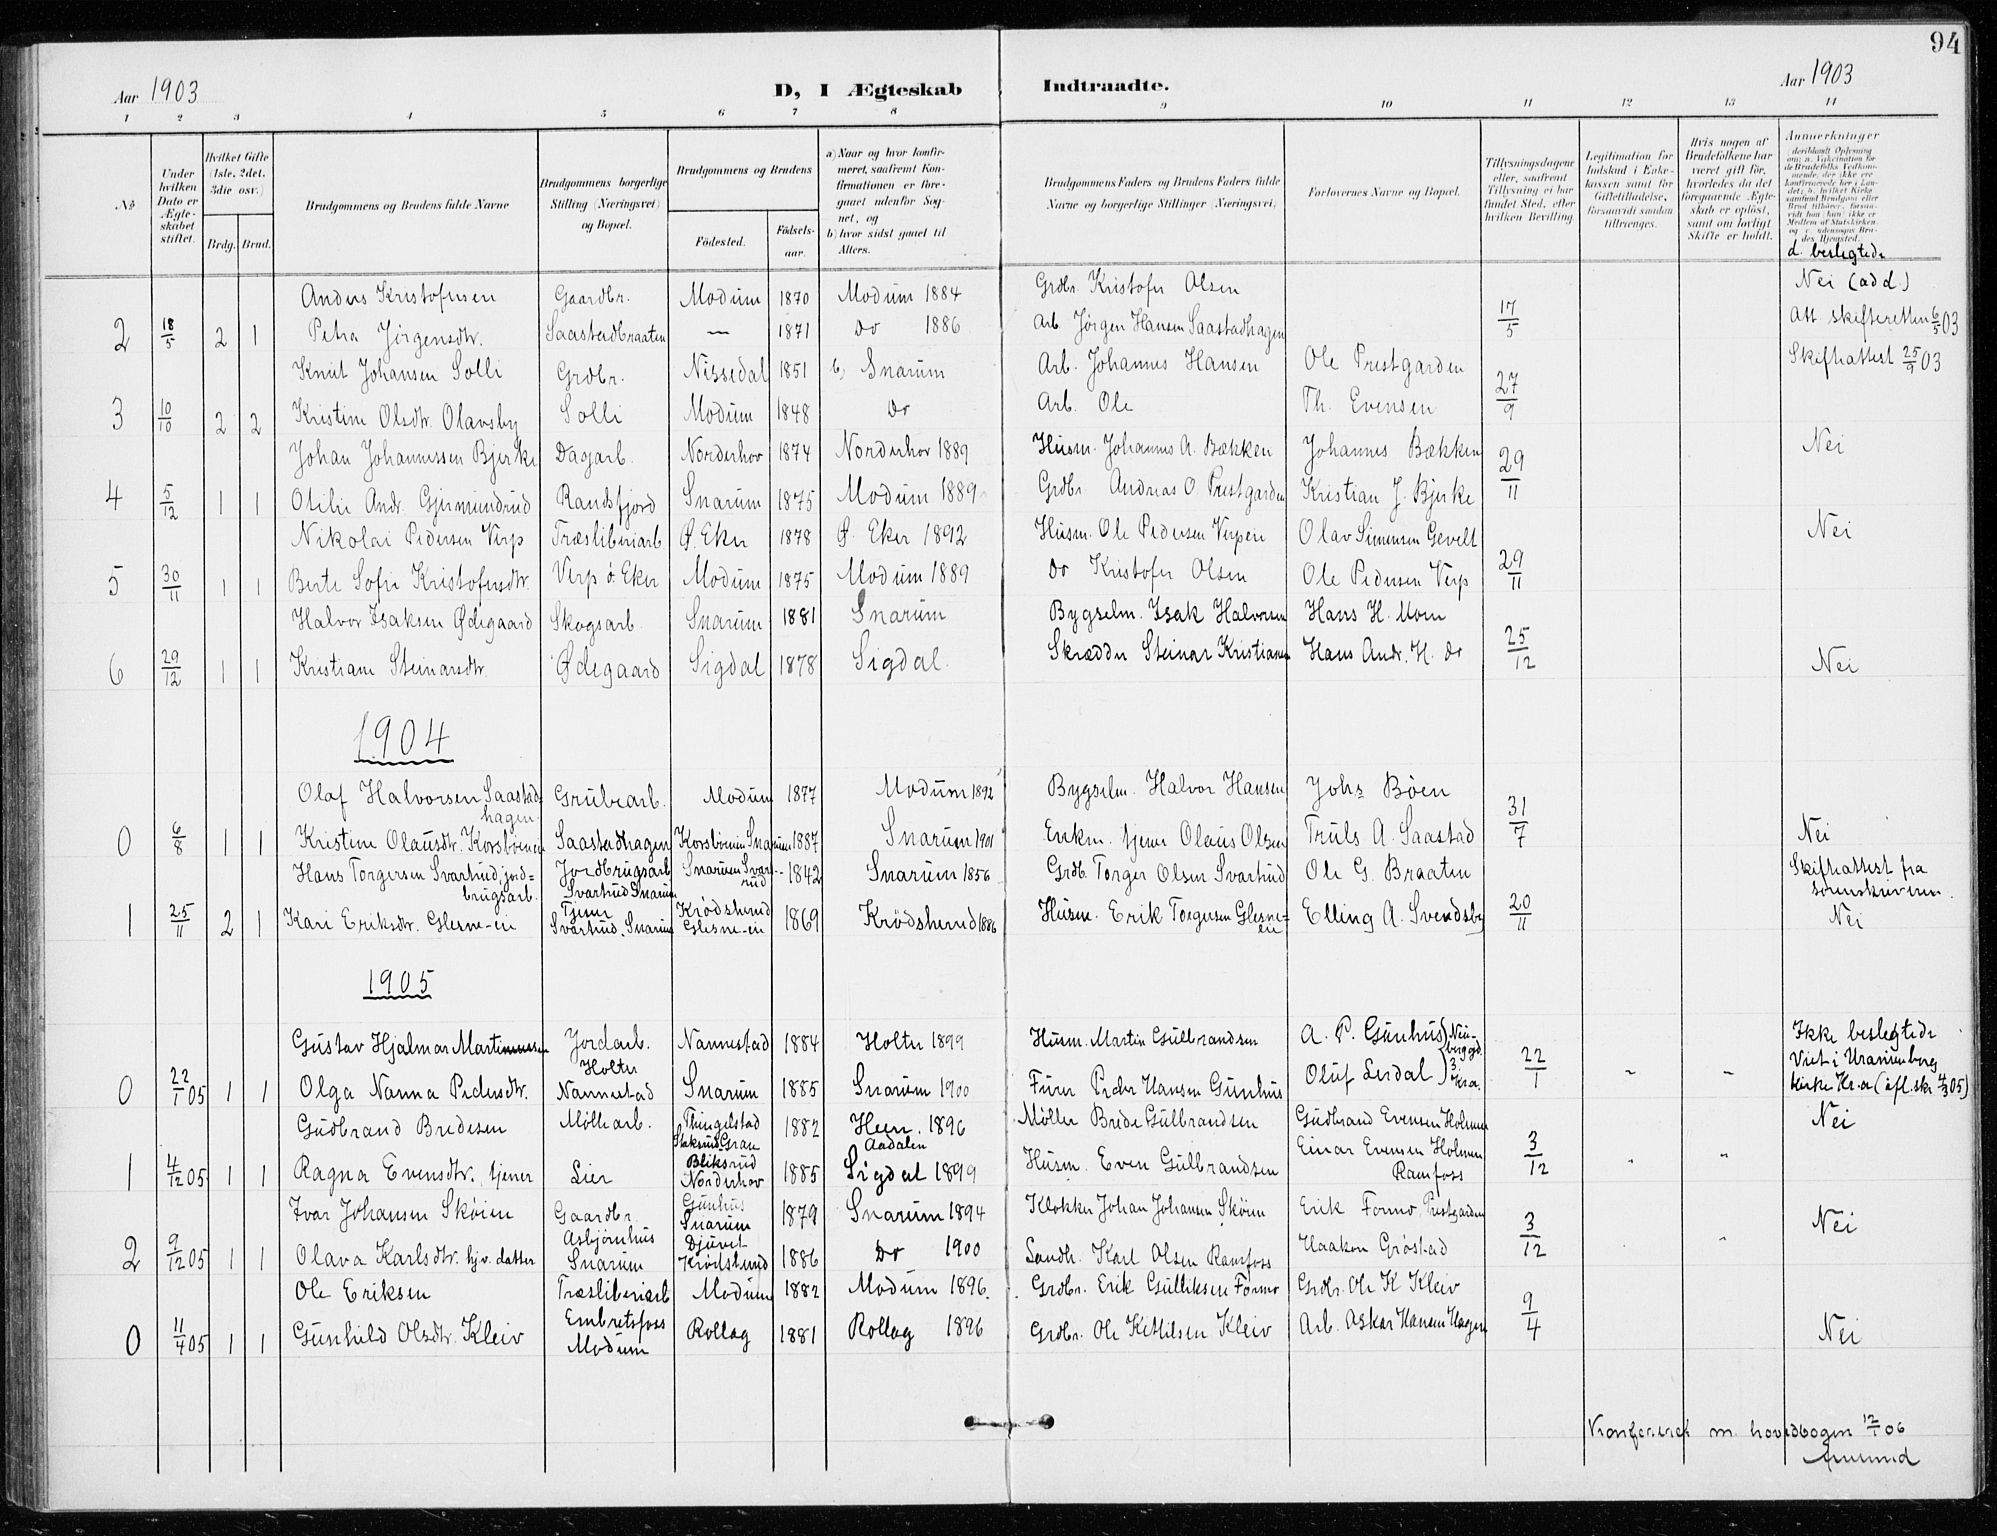 94
Aar 1903 D, I Ægteskab Indtraadte. Aar 1903
1 2 3 4 5 6 7 8 9 10 11 12 13 14
No
Under hvilken Dato er Ægteskabet stiftet.
Hvilket Gifte (1ste, 2det, 3die osv.)
Brdg. Brud.
Brudgommens og Brudens fulde Navne
Brudgommens borgerlige Stilling (Næringsvei) og Bopæl.
Brudgommens og Brudens
Fødested. Fødselsaar.
a) Naar og hvor konfirmeret, saafremt Konfirmationen er foregaaet udenfor Sognet, og
b) hvor sidst gaaet til Alters.
Brudgommens Faders og Brudens Faders fulde Navne og borgerlige Stillinger (Næringsvei)
Forlovernes Navne og Bopæl.
Tillysningsdagene eller, saafremt Tillysning ei har fundet Sted, efter hvilken Bevilling.
Legitimation for Indskud i Enkekassen samt for Giftetilladelse, forsaavidt saadan tiltrænges.
Hvis nogen af Brudefolkene har været gift før, hvorledes da det foregaaende Ægteskab er opløst, samt om lovligt Skifte er holdt.
Anmerkninger
d. beslegtede
Anders Kristofersen Gaardbr. Modum 1870 Modum 1884 Grdbr. Kristofer Olsen Nei (add.)
2 18/5 2 1 Petra Jørgensdtr. Saastadbraaten — 1871 do 1886 Arb. Jørgen Hansen Saastadhagen 17/5 Att. skifteretten 6/5 03
Knut Johansen Solli Grdbr. Nissedal 1851 b) Snarum Arb. Johannes Hansen Ole Prestgarden Skifteattest 25/9 03
3 10/10 2 2 Kristine Olsdtr. Olavsby Solli Modum 1848 do Arb. Ole Th. Evensen 27/9
Johan Johannessen Bjerke Dagarb. Norderhov 1874 Norderhov 1889 Husm. Johannes A. Bækken Johannes Bækken Nei
4 5/12 1 1 Otilie Andr. Gjermundrud Randsfjord Snarum 1875 Modum 1889 Grdbr Andreas O Prestgarden Kristian J. Bjerke 29/11
Nikolai Pedersen Verp Træsliberiarb Ø. Eker 1878 Ø. Eker 1892 Husm. Ole Pedersen Verpen Olav Simensen Gevelt Nei
5 30/11 1 1 Berte Sofie Kristofersdtr. Verp ø. Eker Modum 1875 Modum 1889 do Kristofer Olsen Ole Pedersen Verp 29/11
Halvor Isaksen Ødegaard Skogsarb. Snarum 1881 Snarum Bygselm. Isak Halvorsen Hans H. Moen
6 29/12 1 1 Kristiane Steinarsdtr. Ødegaard Sigdal 1878 Sigdal. Skrædder Steinar Kristiansen Hans Andr. H. do 25/12 Nei
1904
Olaf Halvorsen Saastad- Grubearb. Modum 1877 Modum 1892 Bygselm. Halvor Hansen Johs Bøen
hagen
0 6/8 1 1 Kristine Olausdtr. Korsbøneie Saastadhagen Korsbøneie Snarum 1887 Snarum 1901 Enkm. tjener Olaus Olsen Truls A. Saastad 31/7 Nei
Hans Torgersen Svartrud, jord- Jordbrugsarb Snarum Svart- 1842 Snarum 1856 Grdb. Torger Olsen Svartrud Ole G. Braaten Skifteattest fra
brugsarb. Svartrud Snarum rud sorenskriveren.
1 25/11 2 1 Kari Eriksdtr. Glesne-eie Tjener Svartrud, Snarum Krødsherred Glesne-eie 1869 Krødsherred 1886 Husm. Erik Torgersen Glesne- Elling A. Svendsby 20/11 Nei
eie
1905
Gustav Hjalmar Martinussen Jordarb. Nannestad 1884 Holter 1899 Husm. Martin Gulbrandsen A. P. Gunhus Ikke beslegtede
Holter Viet i Uranienborg
0 22/1 05 1 1 Olga Nanna Pedersdtr. Nannestad Snarum 1885 Snarum 1900 Furer Peder Hansen Gunhus Oluf Lerdal Kr.a. 22/1 – – Kirke Kr.a (afl. skr 4/3 05)
Gudbrand Bredesen Møllearb. Thingelstad 1882 Heen. 1896 Møller Brede Gulbrandsen Gudbrand Evensen Holmen Nei
Gran Aadalen
1 4/12 05 1 1 Ragna Evensdtr. tjener Lier Bliksrud Norderhov 1885 Sigdal 1899 Husm. Even Gulbrandsen Einar Evensen Holmen 3/12
Ramfoss
Ivar Johansen Skøien Gaardbr. Gunhus Snarum 1879 Snarum 1894 Klokker Johan Johansen Skøien Erik Formo, Prestgarden Nei
2 9/12 05 1 1 Olava Karlsdtr. hjv. datter Asbjørnhus Snarum Djuvet Krødsherred 1886 Do 1900 Landh. Karl Olsen Ramfoss Haakon Grøstad 3/12
Ole Eriksen Træsliberiarb Modum 1882 Modum 1896. Grdbr. Erik Gulliksen Formo Grdbr. Ole K Kleiv
0 11/4 05 1 1 Gunhild Olsdtr. Kleiv Embretsfoss Modum Rollag 1881 Rollag 1896 Grdbr. Ole Kittilsen Kleiv Arb. Oskar Hansen Hagen 9/4 Nei
Konfereret m. hovedbogen 12/1 06